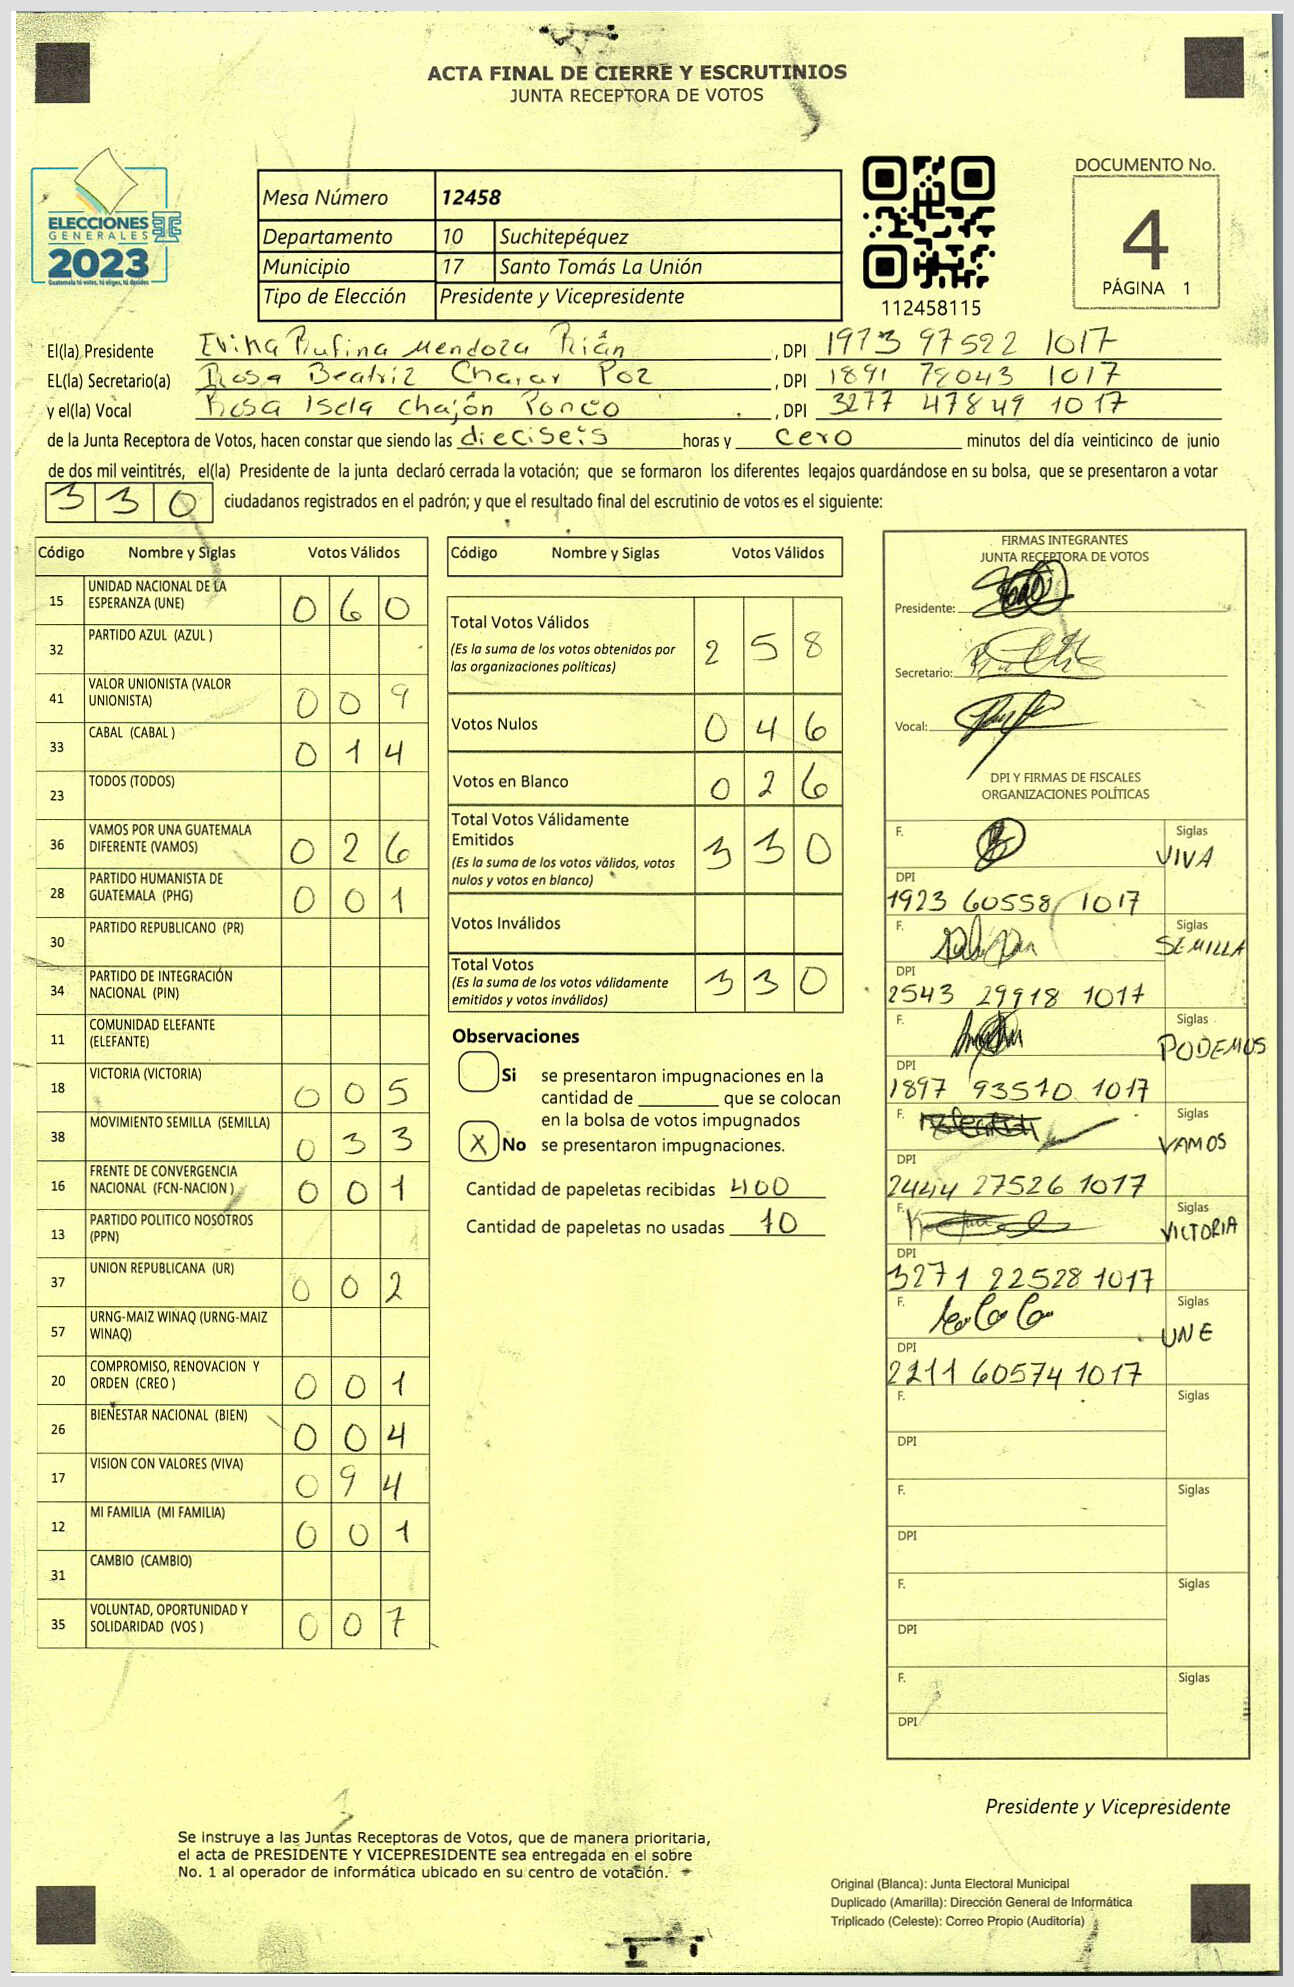 ACTA FINAL DE CIERRE Y ESCRUTINIOS
JUNTA RECEPTORA DE VOTOS
ELECCIONES
GENERALES
2023
Guatemala tú votes, tú eliges, tú decides
Mesa Número 12458
Departamento 10 Suchitepéquez
Municipio 17 Santo Tomás La Unión
Tipo de Elección Presidente y Vicepresidente
112458115
DOCUMENTO No.
4
PÁGINA 1
El(la) Presidente Rufina Mendoza , DPI 1973 97522 1017
EL(la) Secretario(a) Rosa Beatriz Poz , DPI 1891 78043 1017
y el(la) Vocal Rosa Isela Chajón Ponco , DPI 3277 47849 1017
de la Junta Receptora de Votos, hacen constar que siendo las dieciseis horas y cero minutos del día veinticinco de junio
de dos mil veintitrés, el(la) Presidente de la junta declaró cerrada la votación; que se formaron los diferentes legajos guardándose en su bolsa, que se presentaron a votar
330 ciudadanos registrados en el padrón; y que el resultado final del escrutinio de votos es el siguiente:
Código Nombre y Siglas Votos Válidos
15 UNIDAD NACIONAL DE LA ESPERANZA (UNE) 060
32 PARTIDO AZUL (AZUL )
41 VALOR UNIONISTA (VALOR UNIONISTA) 009
33 CABAL (CABAL ) 014
23 TODOS (TODOS)
36 VAMOS POR UNA GUATEMALA DIFERENTE (VAMOS) 026
28 PARTIDO HUMANISTA DE GUATEMALA (PHG) 001
30 PARTIDO REPUBLICANO (PR)
34 PARTIDO DE INTEGRACIÓN NACIONAL (PIN)
11 COMUNIDAD ELEFANTE (ELEFANTE)
18 VICTORIA (VICTORIA) 005
38 MOVIMIENTO SEMILLA (SEMILLA) 033
16 FRENTE DE CONVERGENCIA NACIONAL (FCN-NACION ) 001
13 PARTIDO POLITICO NOSOTROS (PPN)
37 UNION REPUBLICANA (UR) 002
57 URNG-MAIZ WINAQ (URNG-MAIZ WINAQ)
20 COMPROMISO, RENOVACION Y ORDEN (CREO ) 001
26 BIENESTAR NACIONAL (BIEN) 004
17 VISION CON VALORES (VIVA) 094
12 MI FAMILIA (MI FAMILIA) 001
31 CAMBIO (CAMBIO)
35 VOLUNTAD, OPORTUNIDAD Y SOLIDARIDAD (VOS ) 007
Código Nombre y Siglas Votos Válidos
Total Votos Válidos 258
(Es la suma de los votos obtenidos por
las organizaciones políticas)
Votos Nulos 046
Votos en Blanco 026
Total Votos Válidamente
Emitidos 330
(Es la suma de los votos válidos, votos
nulos y votos en blanco)
Votos Inválidos
Total Votos 330
(Es la suma de los votos válidamente
emitidos y votos inválidos)
Observaciones
Si se presentaron impugnaciones en la
cantidad de ________ que se colocan
en la bolsa de votos impugnados
X No se presentaron impugnaciones.
Cantidad de papeletas recibidas 400
Cantidad de papeletas no usadas 10
FIRMAS INTEGRANTES
JUNTA RECEPTORA DE VOTOS
Presidente:
Secretario:
Vocal:
DPI Y FIRMAS DE FISCALES
ORGANIZACIONES POLÍTICAS
F. Siglas VIVA
DPI 1923 60558 1017
F. Siglas SEMILLA
DPI 2543 29918 1017
F. Siglas PODEMOS
DPI 1897 93570 1017
F. Siglas VAMOS
DPI 2444 27526 1017
F. Siglas VICTORIA
DPI 3271 22528 1017
F. Siglas UNE
DPI 2211 60574 1017
F. Siglas
DPI
F. Siglas
DPI
F. Siglas
DPI
F. Siglas
DPI
Presidente y Vicepresidente
Se instruye a las Juntas Receptoras de Votos, que de manera prioritaria,
el acta de PRESIDENTE Y VICEPRESIDENTE sea entregada en el sobre
No. 1 al operador de informática ubicado en su centro de votación.
Original (Blanca): Junta Electoral Municipal
Duplicado (Amarilla): Dirección General de Informática
Triplicado (Celeste): Correo Propio (Auditoría)